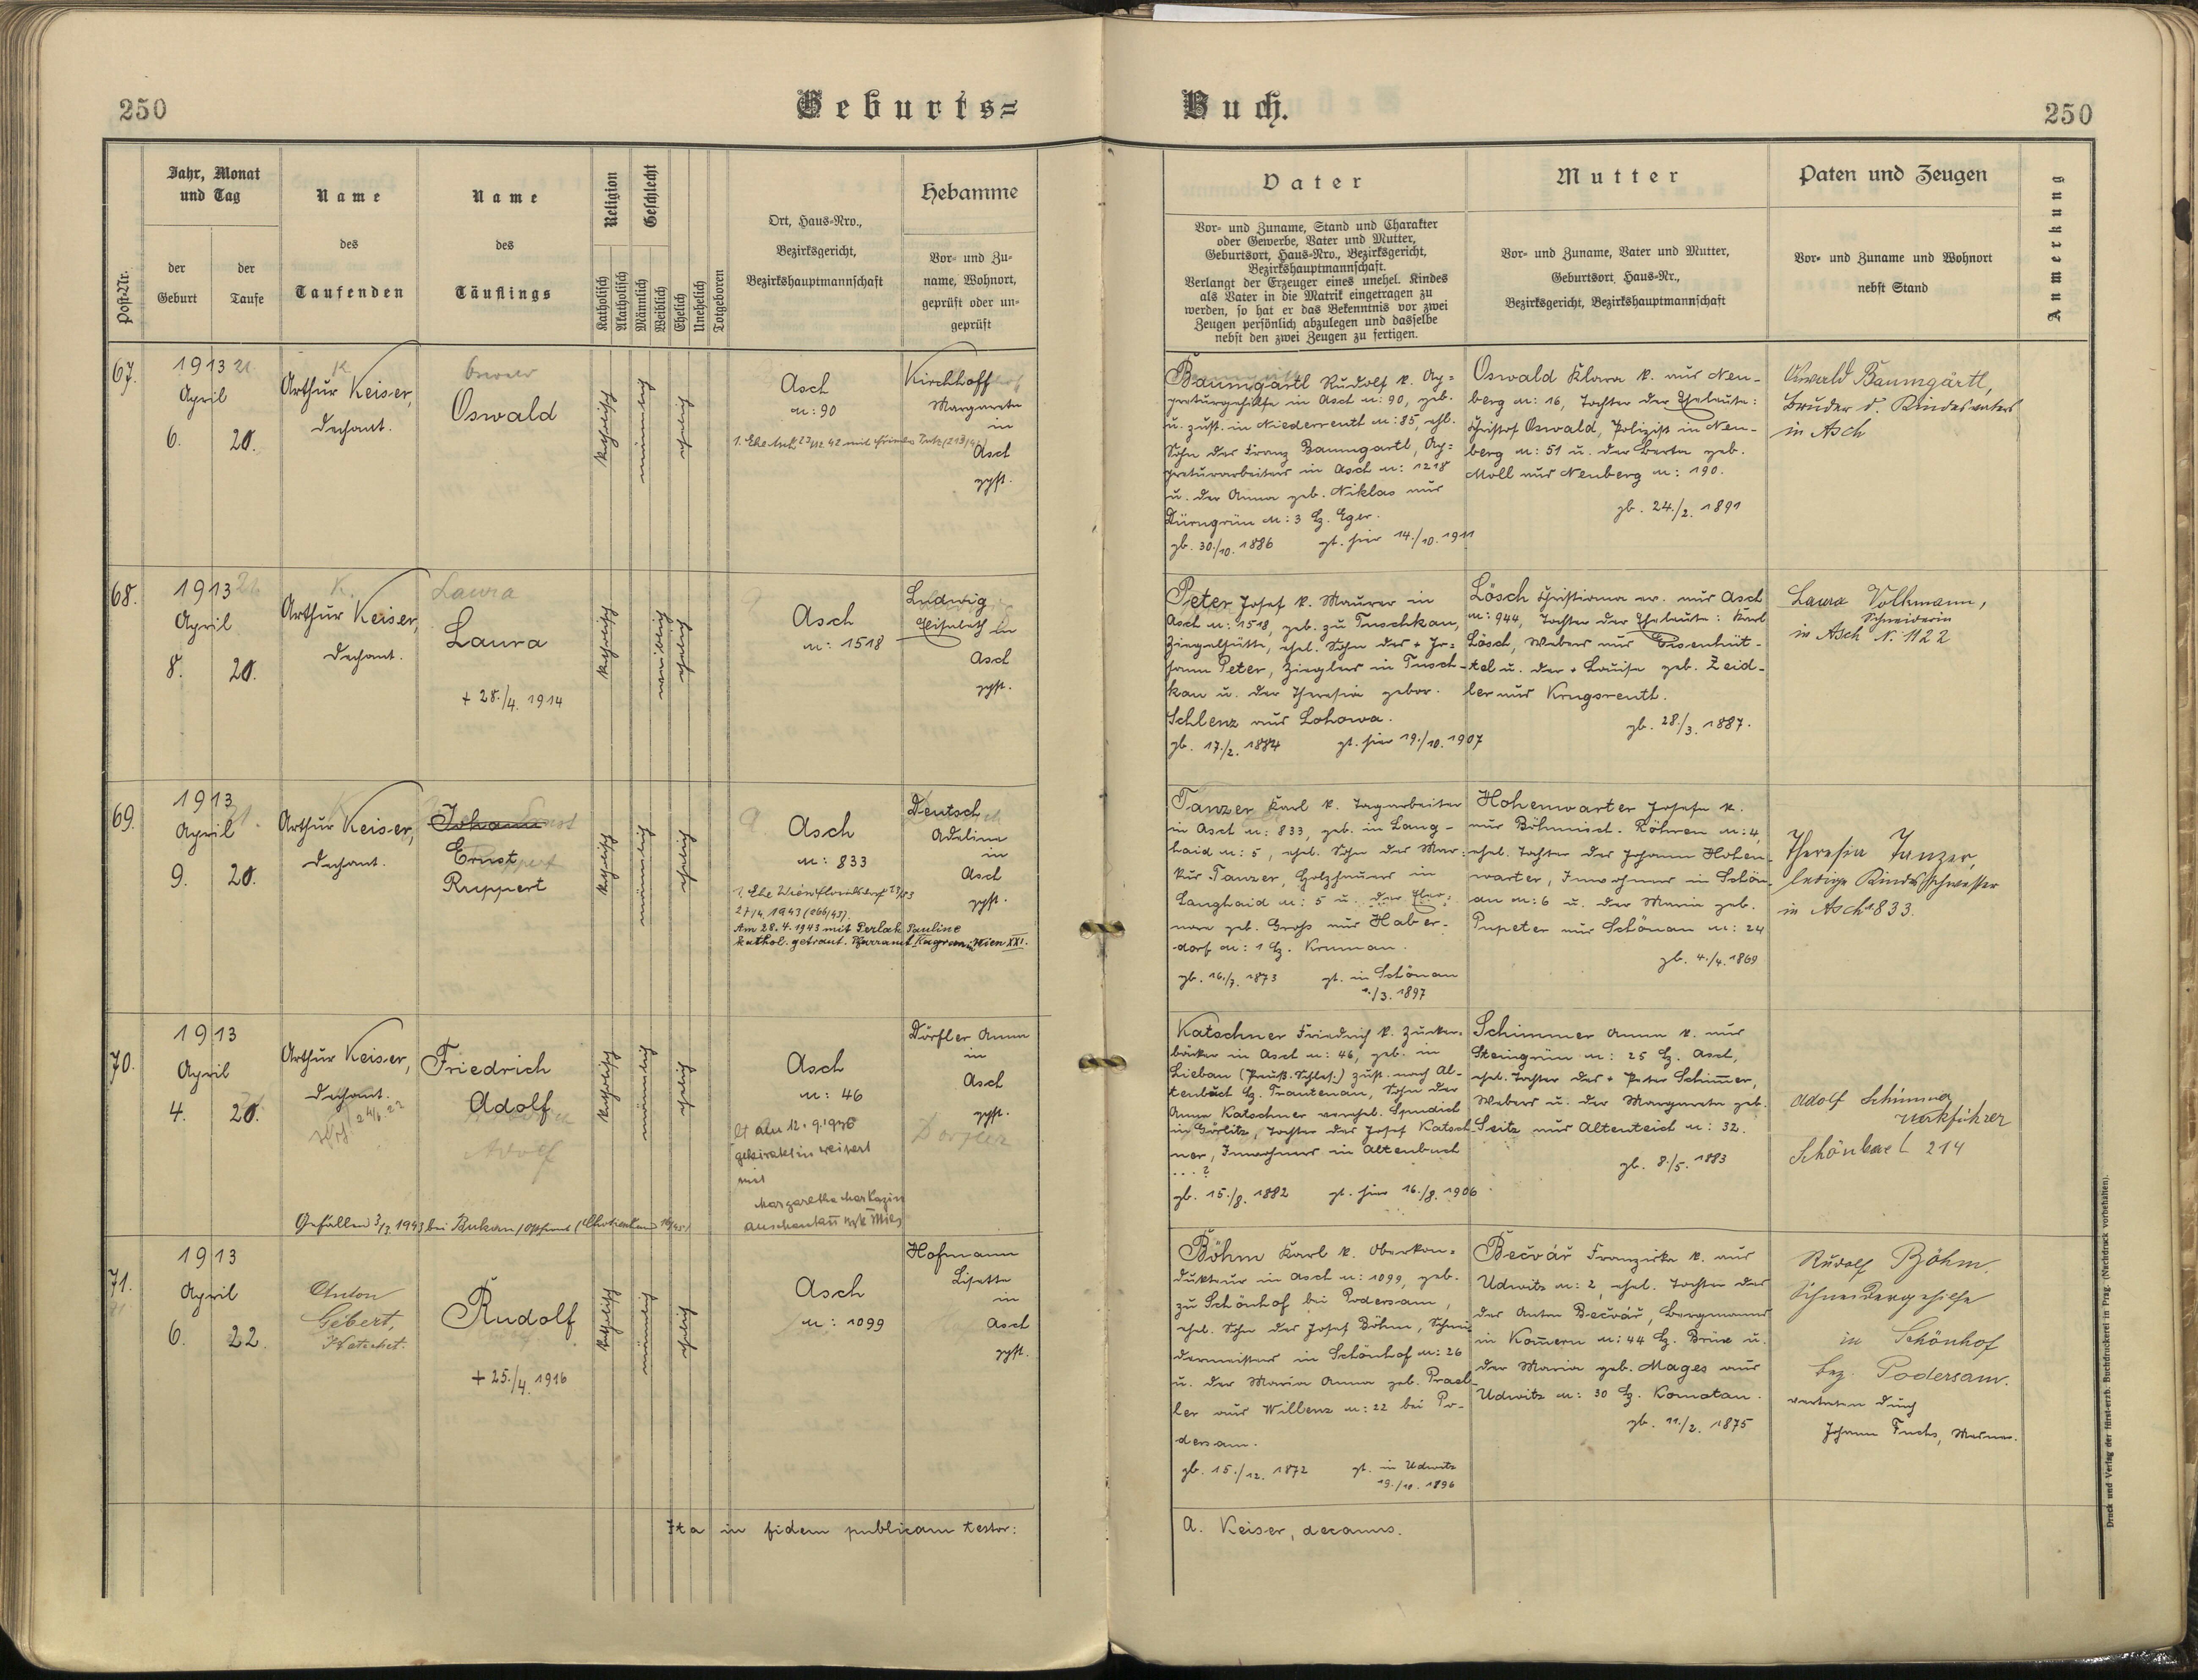 250
Geburts=
Buch.
250
Post-Nr.
Jahr, Monat
und Tag
der
Geburt
der
Taufe
Name
des
Taufenden
Name
des
Täuflings
Religion
Katholisch
Akatholisch
Geschlecht
Männlich
Weiblich
Ehelich
Unehelich
Totgeboren
Ort, Haus-Nro.,
Bezirksgericht,
Bezirkshauptmannschaft
Hebamme
Vor- und Zu-
name, Wohnort,
geprüft oder un-
geprüft
Vater
Vor- und Zuname, Stand und Charakter
oder Gewerbe, Vater und Mutter,
Geburtsort, Haus-Nro., Bezirksgericht,
Bezirkshauptmannschaft.
Verlangt der Erzeuger eines unehel. Kindes
als Vater in die Matrik eingetragen zu
werden, so hat er das Bekenntnis vor zwei
Zeugen persönlich abzulegen und dasselbe
nebst den zwei Zeugen zu fertigen.
Mutter
Vor- und Zuname, Vater und Mutter,
Geburtsort, Haus-Nr.,
Bezirksgericht, Bezirkshauptmannschaft
Paten und Zeugen
Vor- und Zuname und Wohnort
nebst Stand
Anmerkung
67.
1913
April
6. 20.
Arthur Keiser,
Dechant.
Oswald
katholisch
männlich
ehelich
Asch
n: 90
Kirchhoff
Margareta
in
Asch
gpft.
Baumgärtl Rudolf k. Ap=
preturgehilfe in Asch n: 90, geb.
u. zust. in Niederreuth n: 85, ehl.
Sohn des Franz Baumgartl, Ap=
preturarbeiters in Asch n: 1218
u. der Anna geb. Niklas aus
Dürngrün n: 3 Bz. Eger.
gb. 30./10. 1886 gt. hier 14./10. 1911
Oswald Klara k. aus Neu-
berg n: 16, Tochter der Eheleute:
Christof Oswald, Polizist in Neu-
berg n: 51 u. der Berta geb.
Moll aus Neuberg n: 190.
gb. 24./2. 1891
Oswald Baumgärtl,
Bruder d. Kindesvaters
in Asch
68.
1913
April
8. 20.
Arthur Keiser,
Dechant.
Laura
Laura
+ 28./4. 1914
katholisch
weiblich
ehelich
Asch
n: 1518
Ludwig
Elisabeth in
Asch
gpft.
Peter Josef k. Maurer in
Asch n: 1518, geb. zu Tuschkau,
Ziegelhütte, ehel. Sohn des + Jo-
hann Peter, Ziegler in Tusch-
kau u. der Theresia gebor.
Schlenz aus Lohowa.
gb. 17./2. 1884 gt. hier 19./10. 1907
Lösch Christiana ev. aus Asch
n: 944, Tochter der Eheleute: Karl
Lösch, Webers aus Eisenhüt-
tel u. der + Lauise geb. Zeid-
ler aus Krugsreuth.
gb. 28./3. 1887.
Laura Volkmann,
Schneiderin
in Asch N. 1122
69.
1913
April
9. 20.
Arthur Keiser,
Dechant.
Johann
Ernst
Ruppert
katholisch
männlich
ehelich
Asch
n: 833
27/4. 1943 (266/43).
Am 28.4.1943 mit Perlak Pauline
kathol. getraut. Pfarramt Kagran in Wien XXI.
Deutsch
Adeline
in
Asch
gpft.
Tanzer Karl k. Tagarbeiter
in Asch n: 833, geb. in Lang-
haid n: 5, ehel. Sohn des Mar-
kus Tanzer, Holzhauers in
Langhaid n: 5 u. der Eleo-
nore geb. Groß aus Haber-
dorf n: 1 Bz. Kruman.
gb. 16./7. 1873 gt. in Schönau
1./3. 1897
Hohenwarter Josefa k.
aus Böhmisch-Röhren n: 4,
ehel. Tochter des Johann Hohen-
warter, Inwohners in Schön-
au n: 6 u. der Maria geb.
Pupeter aus Schönau n: 24
gb. 4./4. 1869
Theresia Tanzer,
ledige Kindesschwester
in Asch 833.
70.
1913
April
4. 20.
Arthur Keiser,
Dechant.
Friedrich
Adolf
Adolf
katholisch
männlich
ehelich
Asch
n: 46
geheiratet in Weipert
mit
Dörfler Anna
in
Asch
gpft.
Dörfler
Gefallen 3/3 1943 bei
Katschner Friedrich k. Zucker-
bäcker in Asch n: 46, geb. in
Liebau (Preuß. Schles.) zust. nach Al-
tenbuch Bz. Trautenau, Sohn der
Anna Katschner verehel. Spudich
in Görlitz, Tochter des Josef Katsch-
ner, Inwohners in Altenbuch
...?
gb. 15./8. 1882 gt. hier 16./8. 1906
Schimmer Anna k. aus
Steingrün n: 25 Bz. Asch,
ehel. Tochter des + Peter Schimmer,
Webers u. der Margareta geb.
Seitz aus Altenteich n: 32.
gb. 8./5. 1883
Adolf Schimmer
Werkführer
Schönbach 214
71.
1913
April
6. 22.
Anton
Gebert,
Katechet.
Rudolf
+ 25./4. 1916
katholisch
männlich
ehelich
Asch
n: 1099
Hofmann
Lisette
in
Asch
gpft.
Böhm Karl k. Oberkon-
dukteur in Asch n: 1099, geb.
zu Schönhof bei Podersam,
ehel. Sohn des Josef Böhm, Schnei-
dermeisters in Schönhof n: 26
u. der Maria Anna geb. Prasl-
ler aus Willenz n: 22 bei Po-
dersam.
gb. 15./12. 1872 gt. in Udwitz
19./10. 1896
Bečvář Franziska k. aus
Udwitz n: 2, ehel. Tochter des
des Anton Bečvář, Bergmanns
in Komern n: 44 Bz. Brüx u.
der Maria geb. Mages aus
Udwitz n: 30 Bz. Komotau.
gb. 11./2. 1875
Rudolf Böhm.
Schneidergehilfe
in Schönhof
bez. Podersam.
vertreten durch
Johann Fuchs, Mesner.
Ita in fidem publicam testor:
A. Keiser, decanus.
Druck und Verlag der fürst-erzb. Buchdruckerei in Prag. (Nachdruck vorbehalten).